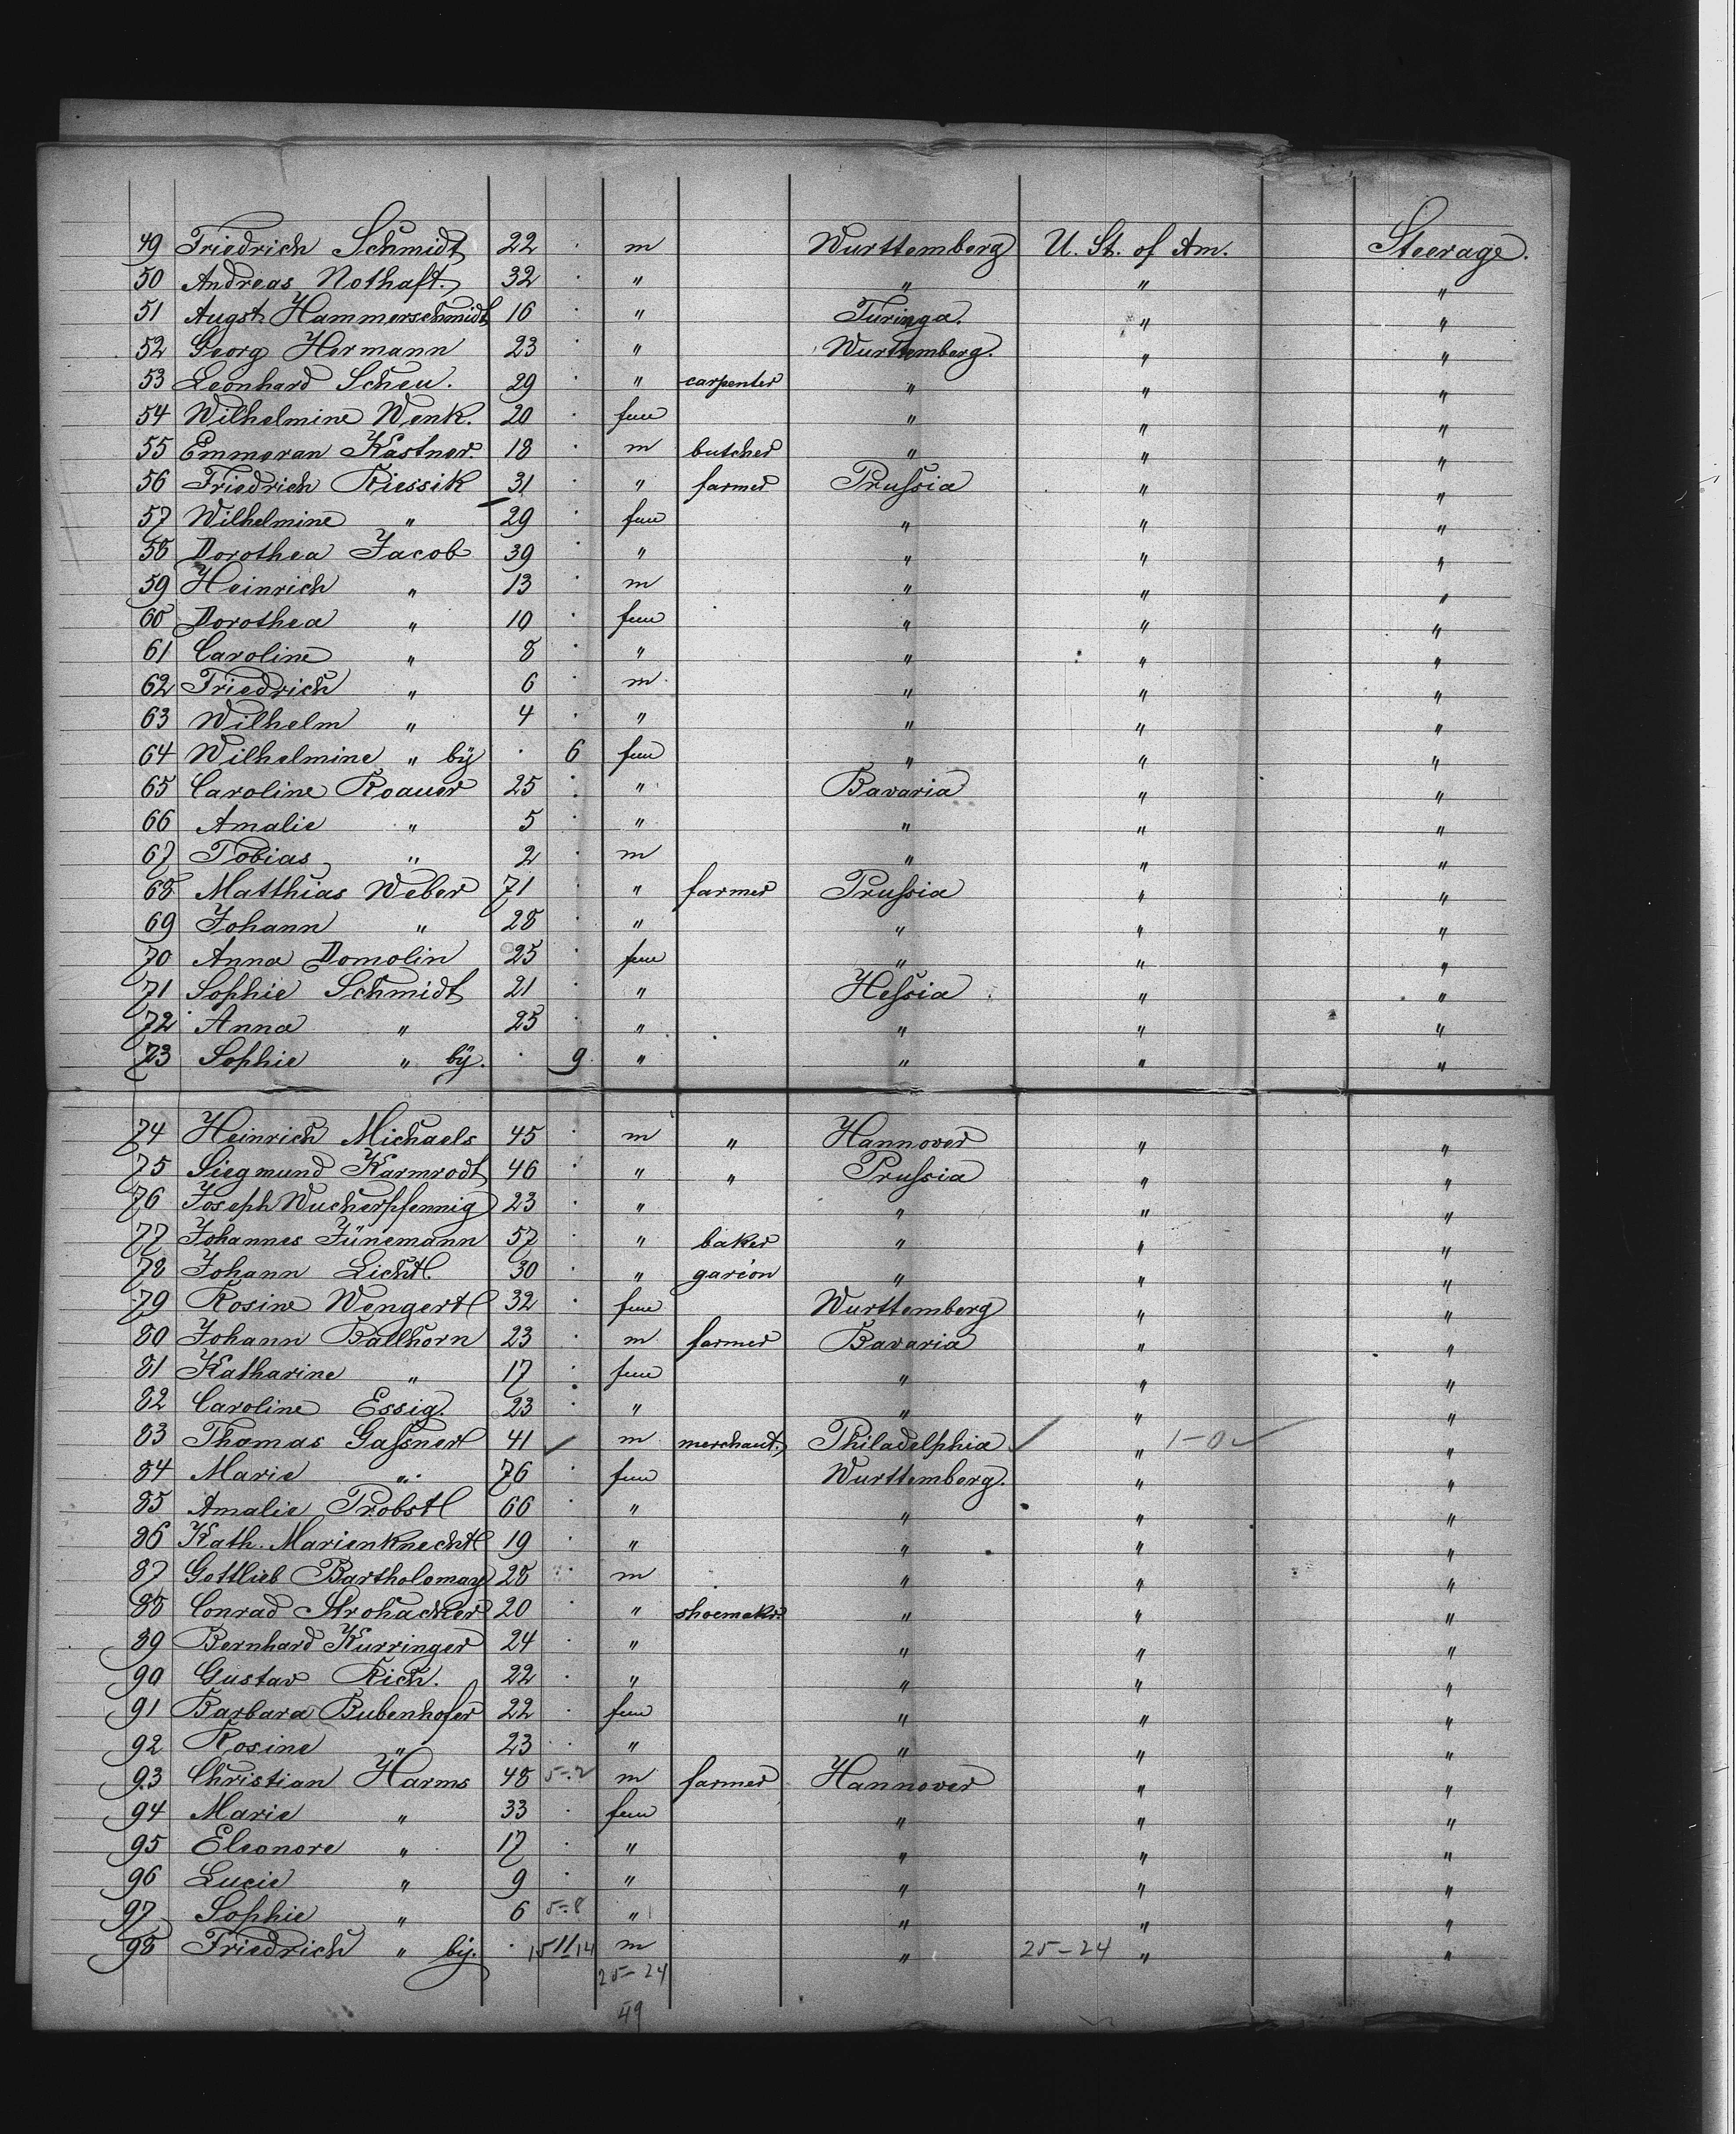 49 Friedrich Schmidt 22 · m Wurttemberg U. St. of Am. Steerage.
50 Andreas Nothaft. 32 · " " " "
51 Augst. Hammerschmidt 16 · " Turinga. " "
52 Georg Hermann 23 · " Wurttemberg. " "
53 Leonhard Scheu. 29 · " carpenter " " "
54 Wilhelmine Wenk. 20 · fem " " "
55 Emmeran Kastner. 18 · m butcher " " "
56 Friedrich Riessik 31 · " farmer Prussia " "
57 Wilhelmine " 29 · fem " " "
58 Dorothea Jacob 39 · " " " "
59 Heinrich " 13 · m " " "
60 Dorothea " 10 · fem " " "
61 Caroline " 8 · " " " "
62 Friedrich " 6 · m " " "
63 Wilhelm " 4 · " " " "
64 Wilhelmine " by · 6 fem " " "
65 Caroline Roauer 25 · " Bavaria " "
66 Amalie " 5 · " " " "
67 Tobias " 2 · m " " "
68 Matthias Weber 71 · " farmer Prussia " "
69 Johann " 28 · " " " "
70 Anna Domolin 25 · fem " " "
71 Sophie Schmidt 21 · " Hessia " "
72 Anna " 25 · " " " "
73 Sophie " by. · 9 " " " "
74 Heinrich Michaels 45 · m " Hannover " "
75 Siegmund Karmrodt 46 · " " Prussia " "
76 Joseph Wucherpfennig 23 · " " " "
77 Johannes Jünemann 57 · " baker " " "
78 Johann Licht. 30 · " garcon " " "
79 Rosine Wengert 32 · fem Wurttemberg " "
80 Johann Ballhorn 23 · m farmer Bavaria " "
81 Katharine " 17 · fem " " "
82 Caroline Essig. 23 · " " " "
83 Thomas Gassner 41 ✓ m merchant. Philadelphia ✓ " 1-0 ✓ "
84 Marie " 76 · fem Wurttemberg. " "
85 Amalie Probst 66 · " " " "
86 Kath. Marienknecht 19 · " " " "
87 Gottlieb Bartholomay 28 · m " " "
88 Conrad Strohacker 20 · " shoemakr. " " "
89 Bernhard Kurringer 24 · " " " "
90 Gustav Rich. 22 · " " " "
91 Barbara Bubenhofer 22 · fem " " "
92 Rosine " 23 · " " " "
93 Christian Harms 48 5-2 m farmer Hannover " "
94 Marie " 33 · fem " " "
95 Eleonore " 17 · " " " "
96 Lucie " 9 · " " " "
97 Sophie " 6 5-8 " " " "
98 Friedrich " by. · 11 m " 25-24 " "
25-24
49